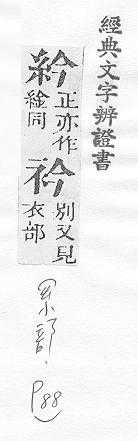 經典文字辨證書
紟 正亦作䋮同
衿 別又見衣部
糸部.
P88